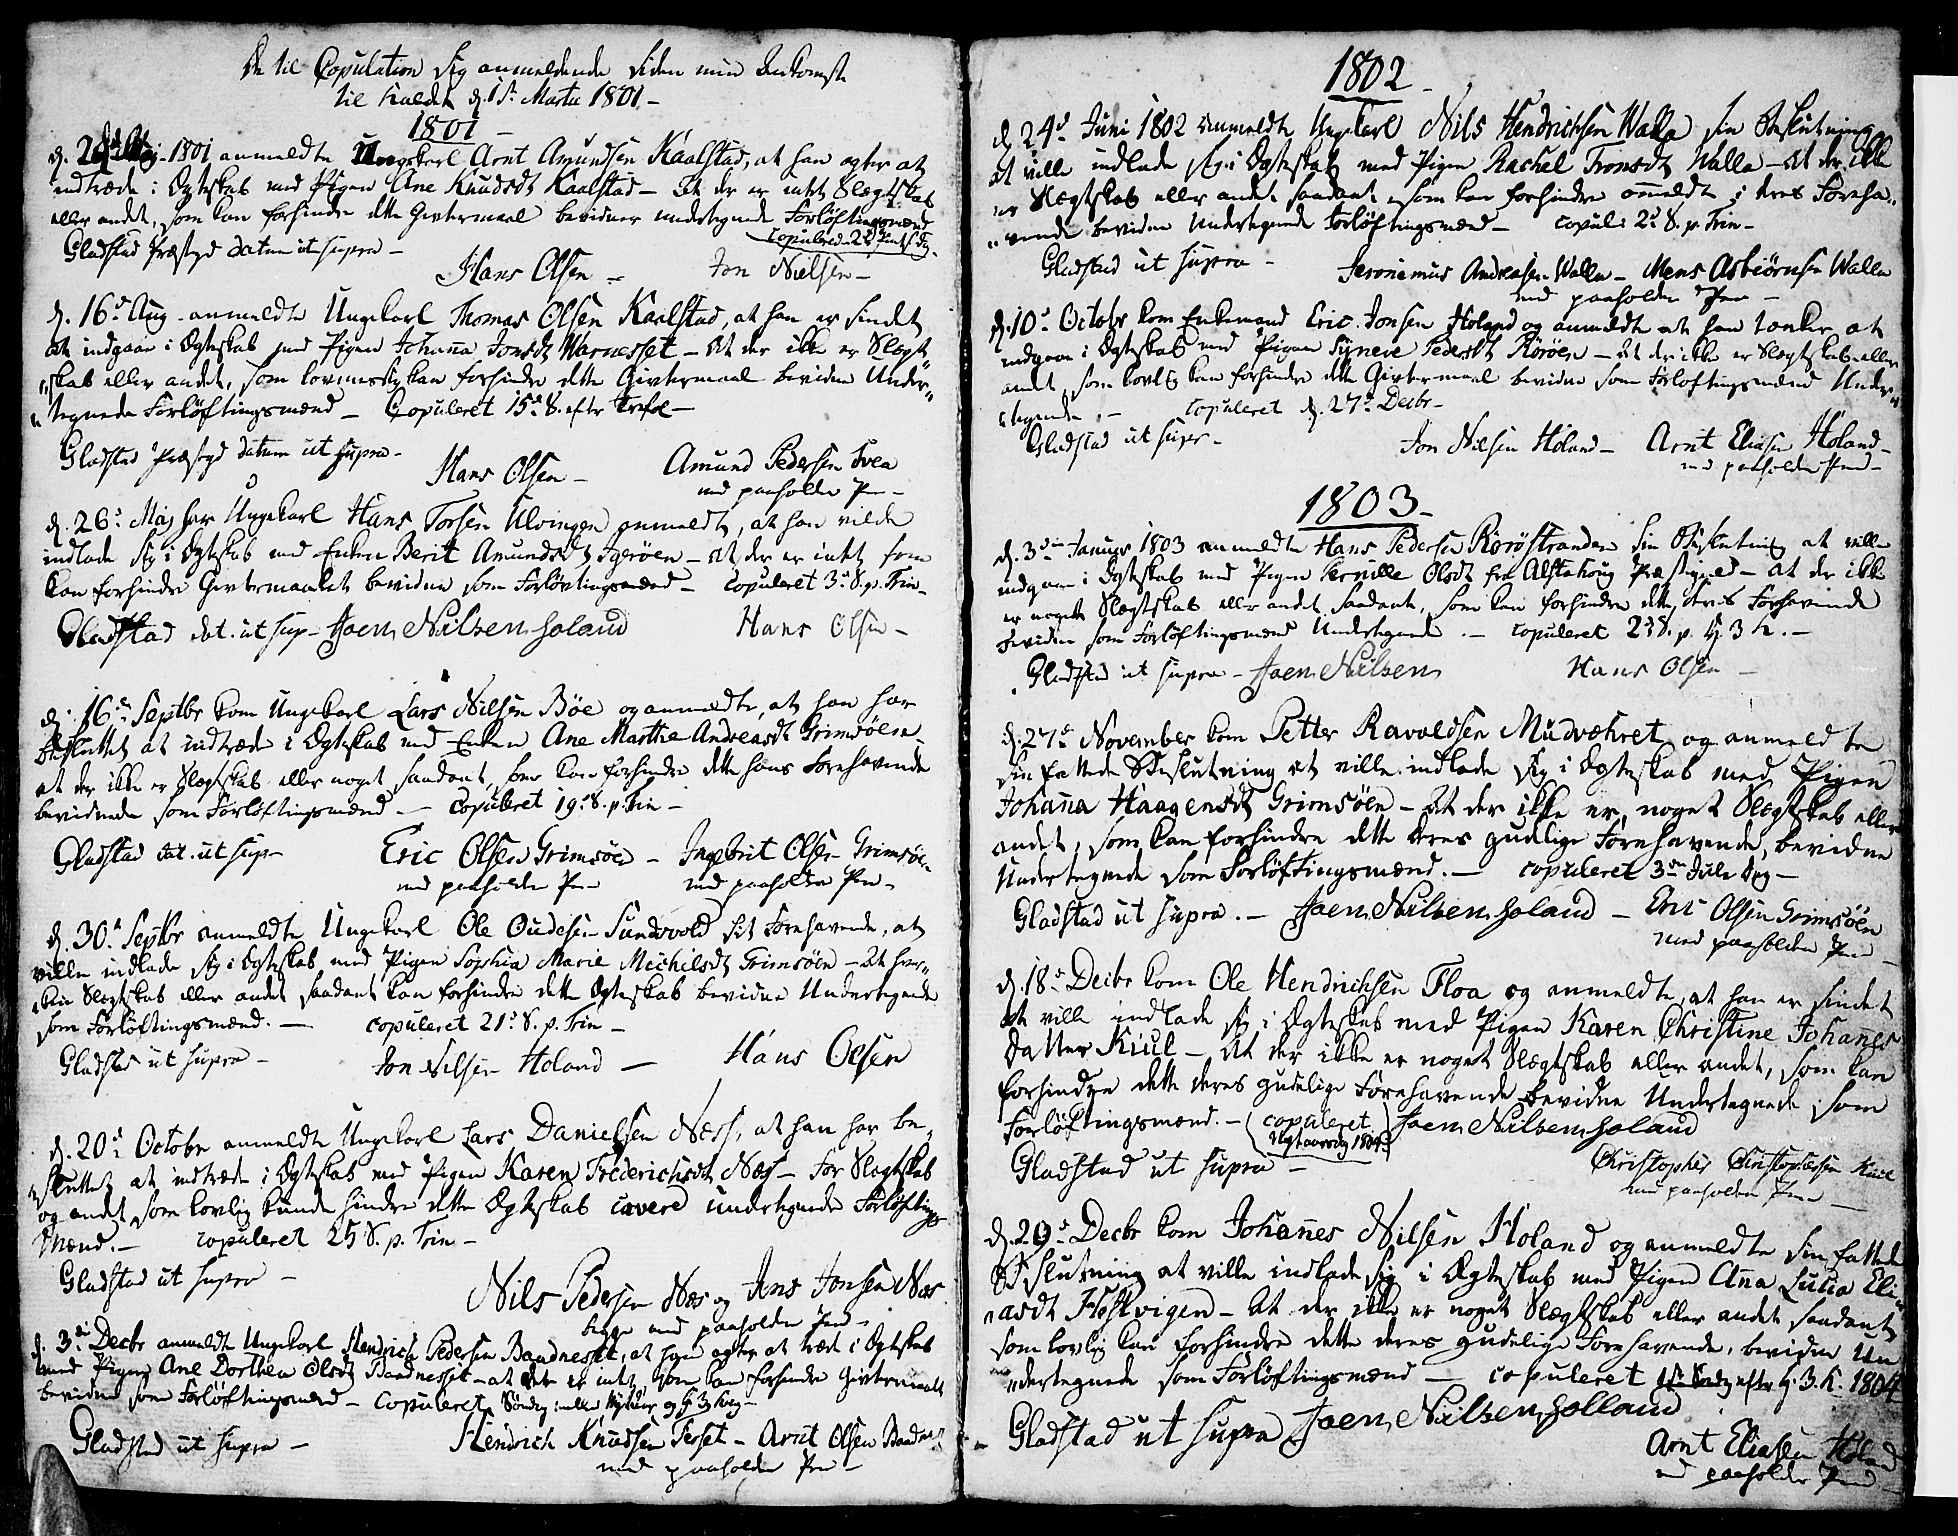 De til Copulation sig anmeldende siden min Ankomst
til Kaldet d. 1st Martii 1801 -
1801 -
d. Maj 1801 anmeldte Ungekarl Arnt Amundsen Kaalstad, at han agter at
indtræde i Ægteskab med Pigen Ane Knudsdt Kaalstad - At der er intet Slægtskab
eller andet, som kan forhindre dette Givtermaal bevidner undertegnede Forløftingsmænd
copulered 2d Pintsedag
Gladstad Præstgd datum ut supra -
Hans Olsen - Jon Nielsen -
d. 16d Aug. anmeldte Ungekarl Thomas Olsen Kaalstad, at han er sindet
at indgaae i Ægteskab med Pigen Johaña Jonsdt Warnesset - At der ikke er Slægt"
"skab eller andet, som lovmessig kan forhindre dette Givtermaal bevidne Under"
"tegnede Forløftingsmænd - Copuleret 15d S. efter Trefol -
Gladstad Præstgd datum ut supra -
Hans Olsen - Amund Pedersen Svea
med paaholden Pen -
d. 26d Maj har Ungekarl Hans Torsen Ulvingen anmeldt, at han vilde
indlade sig i Ægteskab med Enken Berit Amundsdt Igerøen - At der er intet som
kan forhindre Givtermaalet bevidne som Forløvtingsmænd - Copuleret 3d S. p. Trin -
Gladstad dat. ut sup - Joen Nilsen Holand Hans Olsen -
d. 16de Septbr kom Ungekarl Lars Nilsen Bøe og anmeldte, at han har
besluttet at indtræde i Ægteskab med Enken Ane Marthe Andreasdt Grimsöen -
at der ikke er Slægtskab eller noget saadant, som kan forhindre dette hans Forehavende
bevidnede som Forløftingsmænd - Copuleret 19d S. p. Trin -
Gladstad dat. ut sup -
Eric Olsen Grimsöe - Ingebrit Olsen Grimsöe -
med paaholden Pen - med paaholden Pen -
d. 30d Septbr anmeldte Ungekarl Ole Oudesen Sundsvold sit Forehavende, at
ville indlade sig i Ægteskab med Pigen Sophia Marie Michelsdt Grimsöen - At hver"
"ken Slægtskab eller andet saadant kan forhindre dette Ægteskab bevidne Undertegnede
som Forløftingsmænd. - copuleret 21d S. p. Trin -
Gladstad ut supra -
Jon Nilsen Holand - Hans Olsen
d. 20d Octobr anmeldte Ungekarl Lars Danielsen Næss, at han har be"
"sluttet at indtræde i Ægteskab med Pigen Karen Frederichsdt Næs - For Slægtskab
og andet som lovlig kunde hindre dette Ægteskab cavere undertegnede Forløftings"
Mænd. - copuleret 25 S. p. Trin -
Gladstad ut supra -
Nils Pedersen Næs og Jens Jonsen Næs
begge med paaholden Pen -
d. 3d Decbr anmeldte Ungekarl Hendrich Pedersen Baadnesset, at han agter at træde i Ægteskab
med Pigen Ane Dorthea Olsdt Baadnesset - at der er intet som kan forhindre Givtermaalet
bevidne som Forløftingsmænd - copuleret Söndag mellem Nytaar og H. 3 Kong -
Gladstad ut supra -
Hendrich Knudsen Terset - Arnt Olsen Baadnes
med paaholden Pen -
1802 -
d. 24d Juni 1802 anmeldte Ungekarl Nils Hendrichsen Walla sin Beslutning
at ville indlade sig i Ægteskab med Pigen Rachel Tronsdt Walla - At der ikke
er Slægtskab eller andet saadant, som kan forhindre ommeldte i deres Foreha"
"vende bevidne Undertegnede Forløftingsmænd - copul: 2d S. p. Trin -
Gladstad ut supra - Jeronimus Andreasen Walla - Mons Asbiørnsen Walla
med paaholden Pen -
d. 10d Octobr kom Enkemand Eric Jonsen Holand og anmeldte at han tænker at
indgaae i Ægteskab med Pigen Synnive Pedersdt Rörøen - At der ikke er Slægtskab eller
andet som lovlig kan forhindre dette Givtermaal bevidne som Forløftingsmænd Under"
"tegnede. - copuleret d. 27d Decbr -
Gladstad ut supr - Jon Nilsen Holand - Arnt Eliasen Holand -
med paaholden Pen -
1803 -
d. 3die Januar 1803 anmeldte Hans Pedersen Rörøstranden sin Beslutning at ville
indgaae i Ægteskab med Pigen Pernille Olsdt fra Alstahoug Præstegield - at der ikke
er noget Slægtskab eller andet saadant, som kan forhindre dette deres Forehavende
bevidne som Forløftingsmænd Undertegnede. - copuleret 2d S. p. H. 3 K. -
Gladstad ut supra - Joen Nilsen Hans Olsen -
d. 27d November kom Petter Ravaldsen Mudvæhret og anmeldte
sin fattede Beslutning at ville indlade sig i Ægteskab med Pigen
Johaña Haagensdt Grimsöen - At der ikke er noget Slægtskab eller
andet, som kan forhindre dette deres gudelige Forehavende, bevidne
Undertegnede som Forløftingsmænd. - copuleret 3die Jule Dag -
Gladstad ut supra. - Joen Nilsen Holand - Eric Olsen Grimsöen
med paaholden Pen -
d. 18d Decbr kom Ole Hendrichsen Floa og anmeldte, at han er sindet
at ville indlade sig i Ægteskab med Pigen Karen Christine Johañes
datter Kiul - At der ikke er noget Slægtskab eller andet, som kan
forhindre dette deres gudelige Forehavende bevidne Undertegnede som
Forløftingsmænd. - (copuleret Joen Nilsen Holand
Nytaarsdag 1804)
Gladstad ut supra - Christopher Christophersen Kiul
med paaholden Pen -
d. 29d Decbr kom Johañes Nilsen Holand og anmeldte sin fattede
Beslutning at ville indlade sig i Ægteskab med Pigen Aña Lucia Eli"
"asdt Höstvigen - At der ikke er noget Slægtskab eller andet saadant
som lovlig kan forhindre dette deres gudelige Forehavende, bevidne Un"
"dertegnede som Forløftingsmænd - copuleret 1st Sødg efter H. 3. K. 1804
Gladstad ut supra Joen Nilsen Holland
Arnt Eliasen Holand
med paaholden Pen -